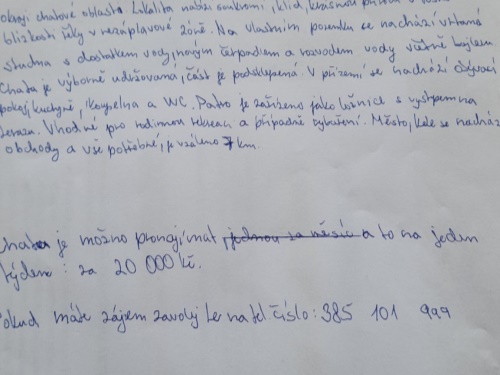 okraji chatové oblasti. Lokalita nabízí soukromí, klid, krásnou přírodu v
blízkosti řeky v nezáplavové zóně. Na vlastním pozemku se nachází vrtaná
studna s dostatkem vody, novým čerpadlem a rozvodem vody včetně bojleru
Chata je výborně udržovaná, část je podsklepená. V přízemí se nachází obývací
pokoj, kuchyně, koupelna a WC. Patro je zařízeno jako ložnice s výstupem na
terasu. Vhodné pro rodinnou rekreaci a případně bydlení. Město, kde se nachází
obchody a vše potřebné, je vzáleno 7 km.
Chatu je možno pronajímat, jednou za měsíc a to na jeden
týden: za 20 000 kč.
Pokud máte zájem zavolejte na tel. číslo: 385 101 999